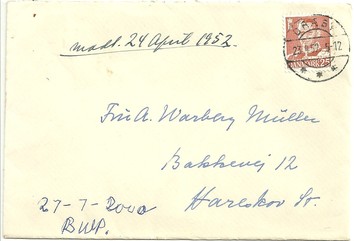 modt. 24 April 1952.
DANMARK 25
Fru A. Warberg Müller
Bakkevej 12
Hareskov St.
27-7-2000
BWP.